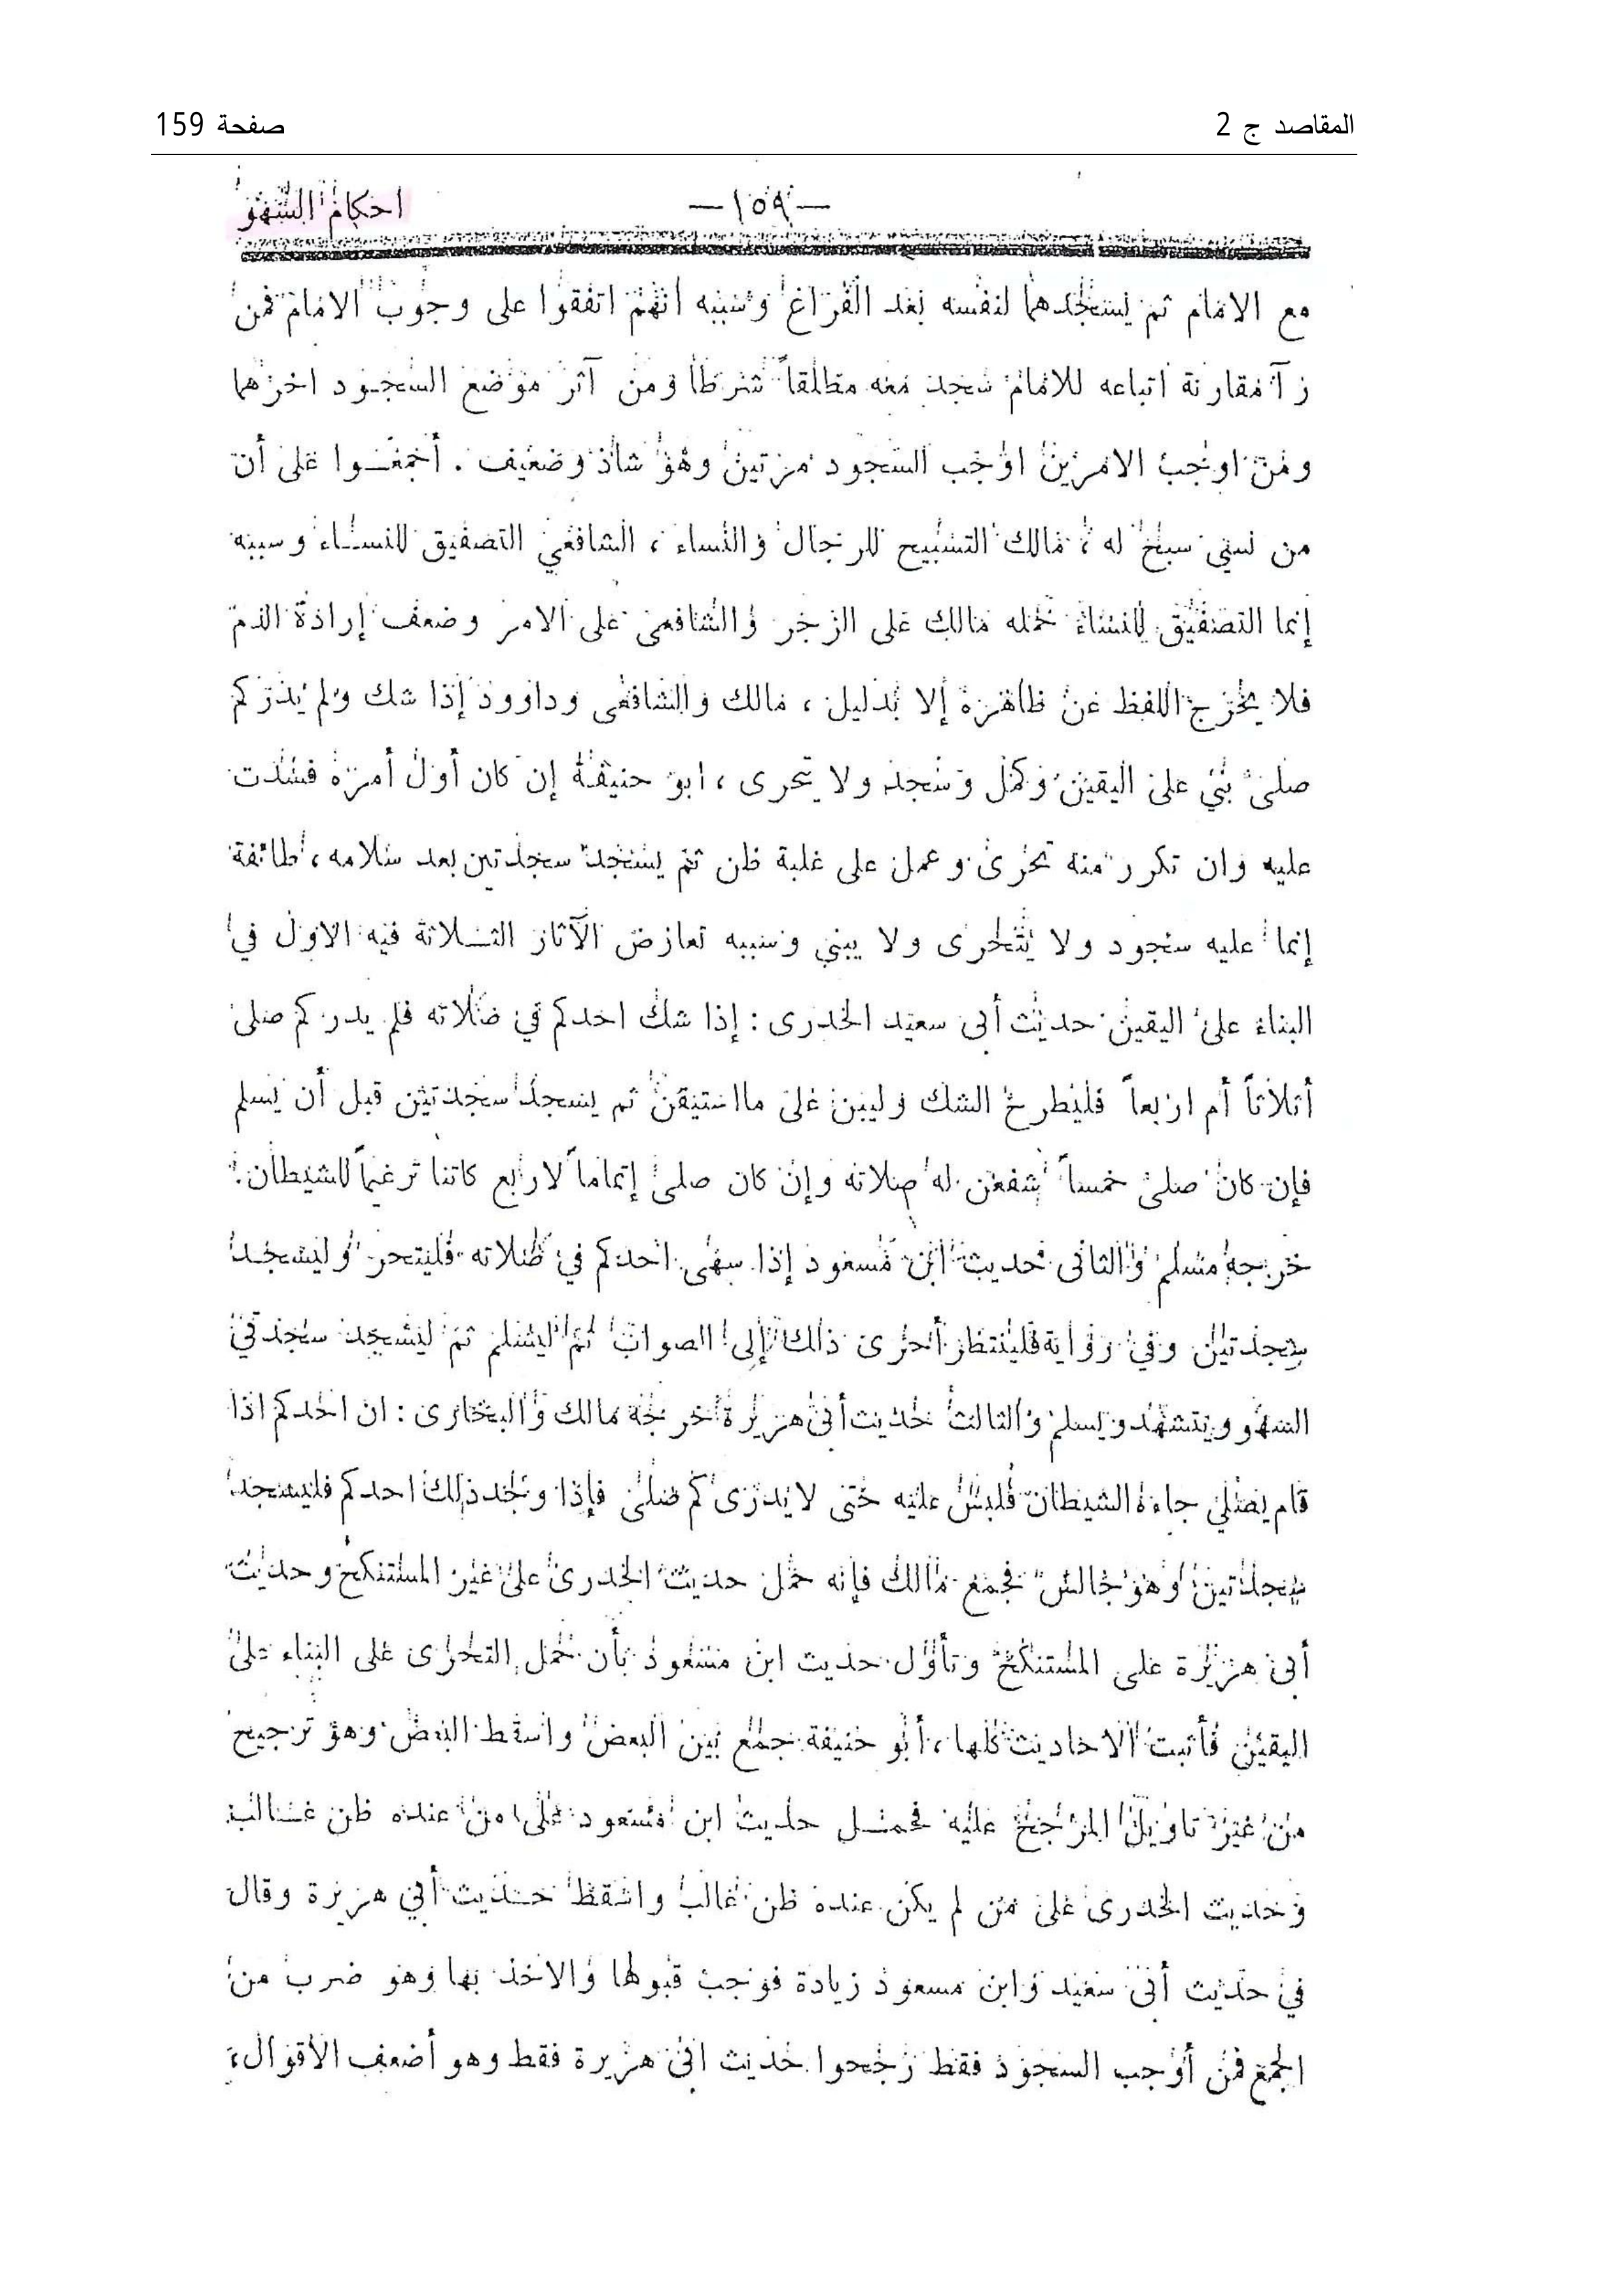 المقاصد ج 2
صفحة 159
احكام السهو
— ١٥٩ —
مع الامام ثم يسجدهما لنفسه بعد الفراغ وسببه انهم اتفقوا على وجوب الامام فمن
رآ مقارنة اتباعه للامام سجد معه مطلقاً شرطا ومن آثر موضع السجود اخرهما
ومن اوجب الامرين اوجب السجود مرتين وهو شاذ وضعيف . أجمعوا على أن
من نسي سبح له ، مالك التسبيح للرجال والنساء ، الشافعي التصفيق للنساء وسببه
إنما التصفيق للنساء حمله مالك على الزجر والشافعى على الامر وضعف إرادة الذم
فلا يخرج اللفظ عن ظاهره إلا بدليل ، مالك والشافعى وداوود إذا شك ولم يدر كم
صلى بني على اليقين وكمل وسجد ولا يتحرى ، ابو حنيفة إن كان أول أمره فسدت
عليه وان تكرر منه تحرى وعمل على غلبة ظن ثم يسجد سجدتين بعد سلامه ، طائفة
إنما عليه سجود ولا يتحرى ولا يبني وسببه تعارض الآثار الثلاثة فيه الاول في
البناء على اليقين حديث أبى سعيد الخدرى : إذا شك احدكم في صلاته فلم يدر كم صلى
أثلاثاً أم اربعاً فليطرح الشك وليبن على ما استيقن ثم يسجد سجدتين قبل أن يسلم
فإن كان صلى خمساً شفعن له صلاته وإن كان صلى إتماماً لاربع كانتا ترغيماً للشيطان .
خرجه مسلم والثانى حديث ابن مسعود إذا سهى احدكم في صلاته فليتحر وليسجد
سجدتين وفي رواية فلينتظر أحرى ذلك إلى الصواب ثم ليسلم ثم ليسجد سجدتي
السهو ويتشهد ويسلم والثالث حديث أبى هريرة أخرجه مالك والبخارى : ان احدكم اذا
قام يصلي جاءه الشيطان فلبس عليه حتى لا يدرى كم صلى فإذا وجد ذلك احدكم فليسجد
سجدتين وهو جالس فجمع مالك فإنه حمل حديث الخدرى على غير المستنكح وحديث
أبى هريرة على المستنكح وتأول حديث ابن مسعود بأن حمل التحرى على البناء على
اليقين فأثبت الاحاديث كلها ، أبو حنيفة جمع بين البعض واسقط البعض وهو ترجيح
من غير تاويل المرجح عليه فحمل حديث ابن مسعود على من عنده ظن غالب
وحديث الخدرى على من لم يكن عنده ظن غالب واسقط حديث أبي هريرة وقال
في حديث أبى سعيد وابن مسعود زيادة فوجب قبولها والاخذ بها وهو ضرب من
الجمع فمن أوجب السجود فقط رجحوا حديث ابى هريرة فقط وهو أضعف الأقوال ،